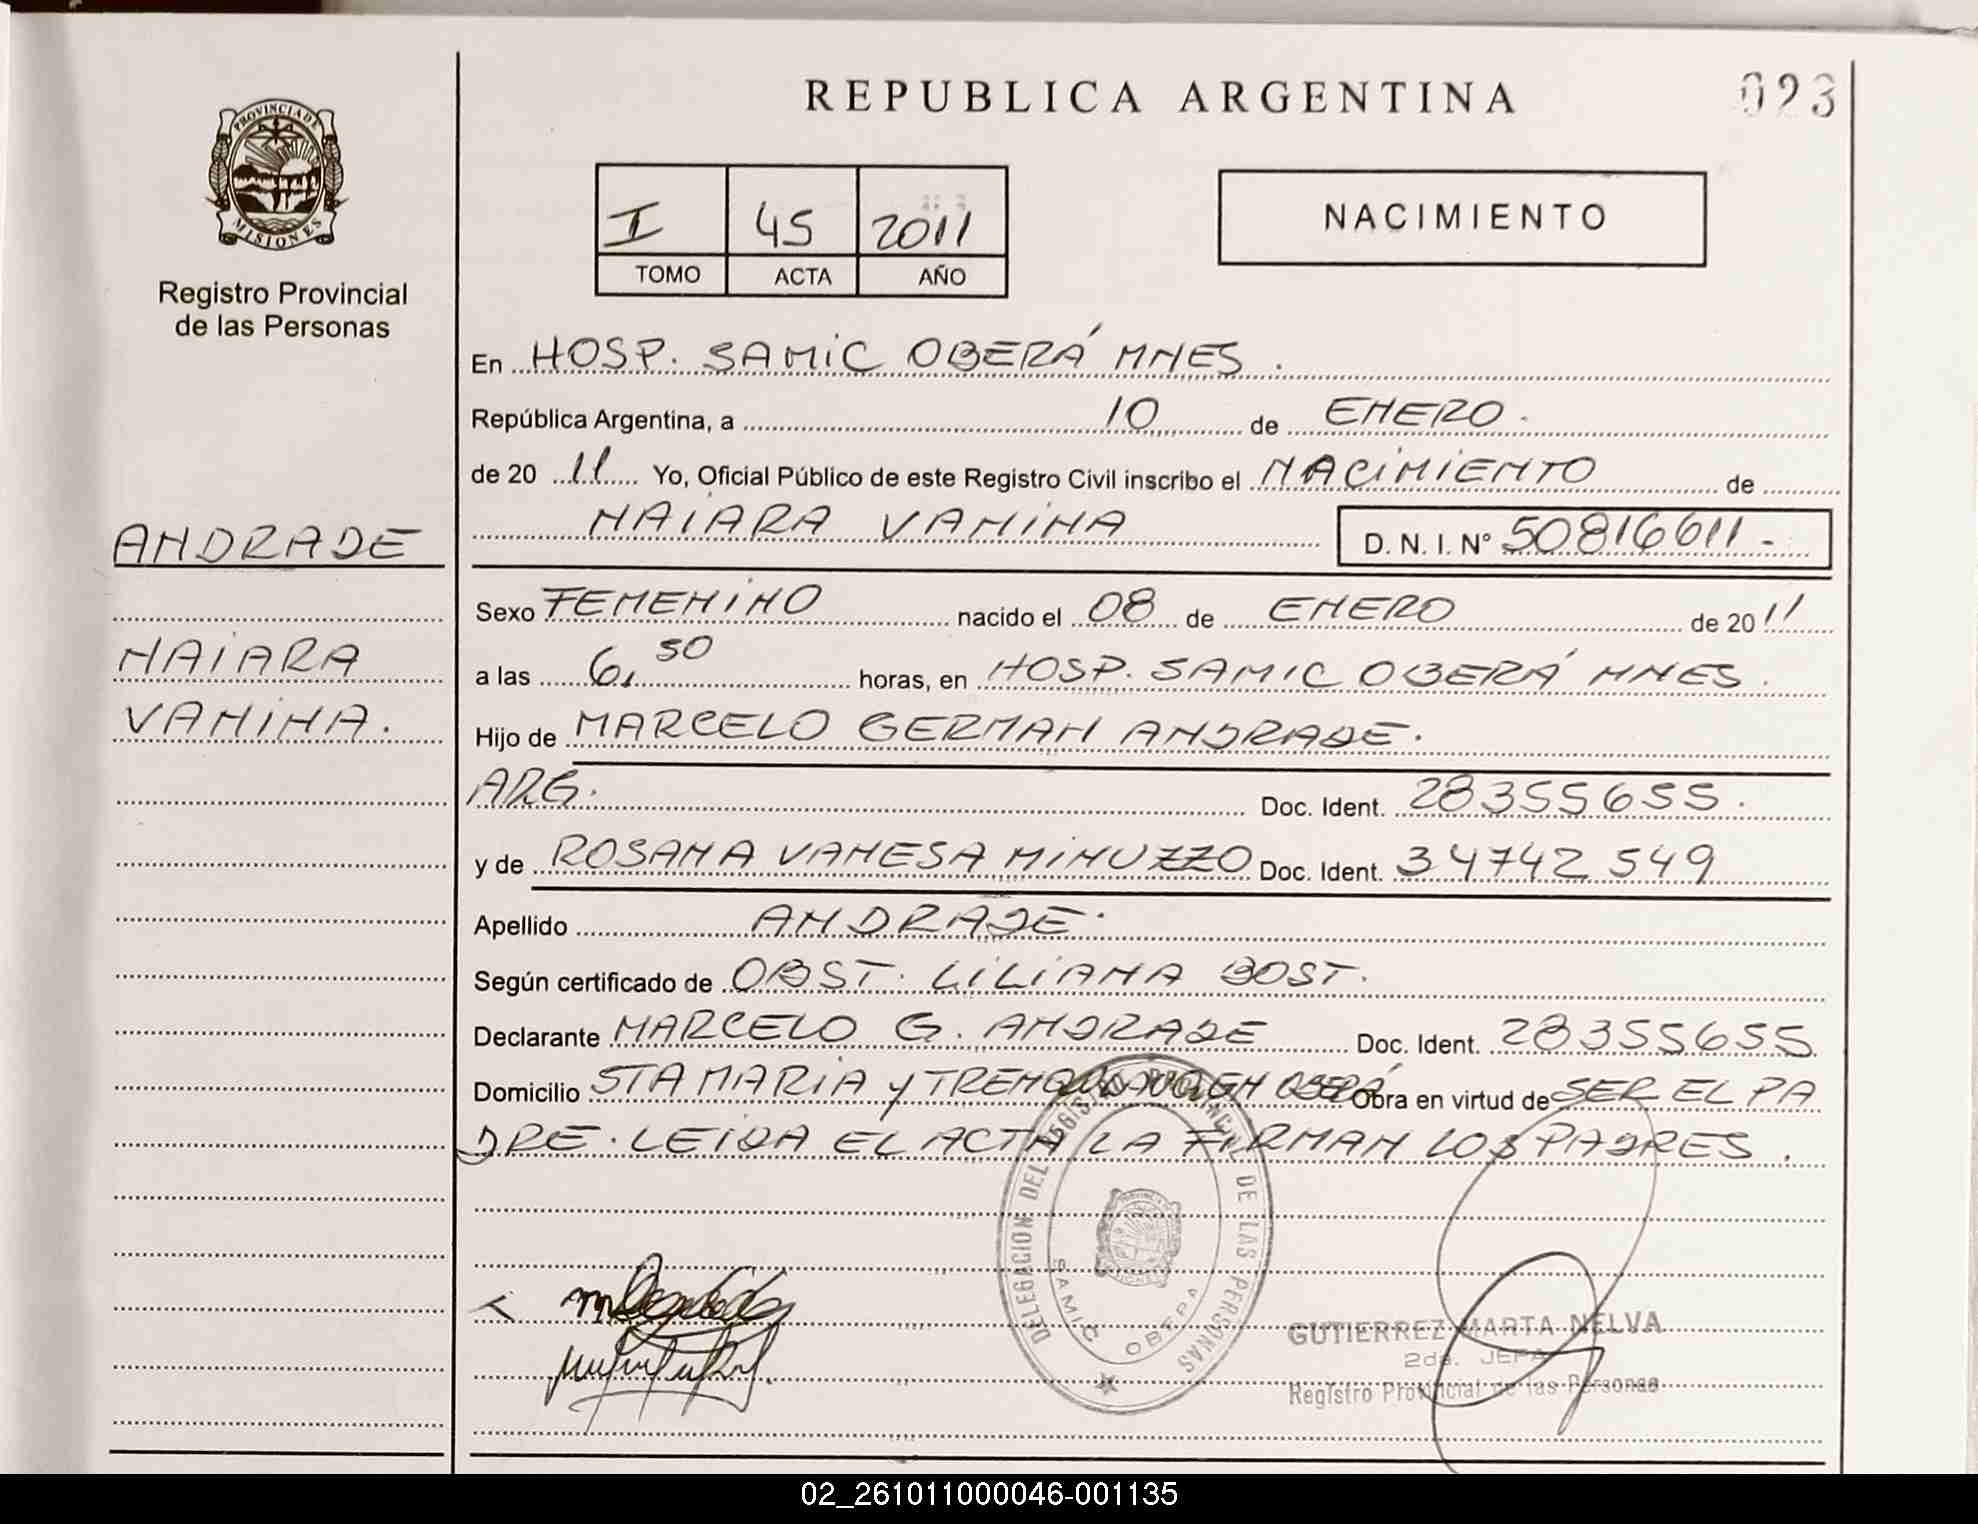 REPUBLICA ARGENTINA
023
PROVINCIA DE
MISIONES
Registro Provincial
de las Personas
I 45 2011
TOMO ACTA AÑO
NACIMIENTO
En HOSP. SAMIC OBERÁ MNES.
República Argentina, a 10 de ENERO.
de 20 11 Yo, Oficial Público de este Registro Civil inscribo el NACIMIENTO de
NAIARA VANINA D. N. I. N° 50816611.-
ANDRADE
NAIARA
VANINA.
Sexo FEMENINO nacido el 08 de ENERO de 20 11
a las 6,50 horas, en HOSP. SAMIC OBERÁ MNES.
Hijo de MARCELO GERMAN ANDRADE.
ARG. Doc. Ident. 28355655.
y de ROSANA VANESA MINUZZO Doc. Ident. 34742549
Apellido ANDRADE.
Según certificado de OBST. LILIANA BOST.
Declarante MARCELO G. ANDRADE Doc. Ident. 28355655
Domicilio STA MARIA y OBERÁ Obra en virtud de SER EL PA
DRE. LEIDA EL ACTA LA FIRMAN LOS PADRES.
DELEGACION DEL REGISTRO PROVINCIAL DE LAS PERSONAS
SAMIC OBERA
GUTIERREZ MARTA NELVA
2da. JEFA
Registro Provincial de las Personas
02_261011000046-001135